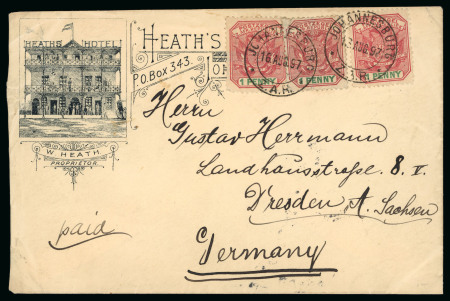 HEATH'S HOTEL
HEATH'S
P.O. Box 343.
W. HEATH
PROPRIETOR
JOHANNESBURG
16 AUG. 97
Z.A.R.
JOHANNESBURG
AUG 97
Z.A.R.
1 PENNY
1 PENNY
1 PENNY
Herrn
Gustav Herrmann
Landhausstraße. 8. II.
Dresden A. Sachsen
paid
Germany